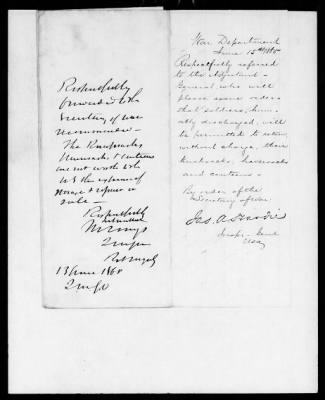 Respectfully
forwarded to the
Secretary of War
recommended —
The Knapsacks
Haversacks & Canteens
are not worth to the
US the expense of
storage & expense in
sale —
Respectfully
13 June 1865
War Department
June 15th 1865
Respectfully referred
to the Adjutant-
General who will
please issue orders
that soldiers, honor-
ably discharged, will
be permitted to retain,
without charge, their
knapsacks, haversacks
and canteens.
By order of the
Secretary of War.
Jas. A. Hardie
Inspr. Genl
USA